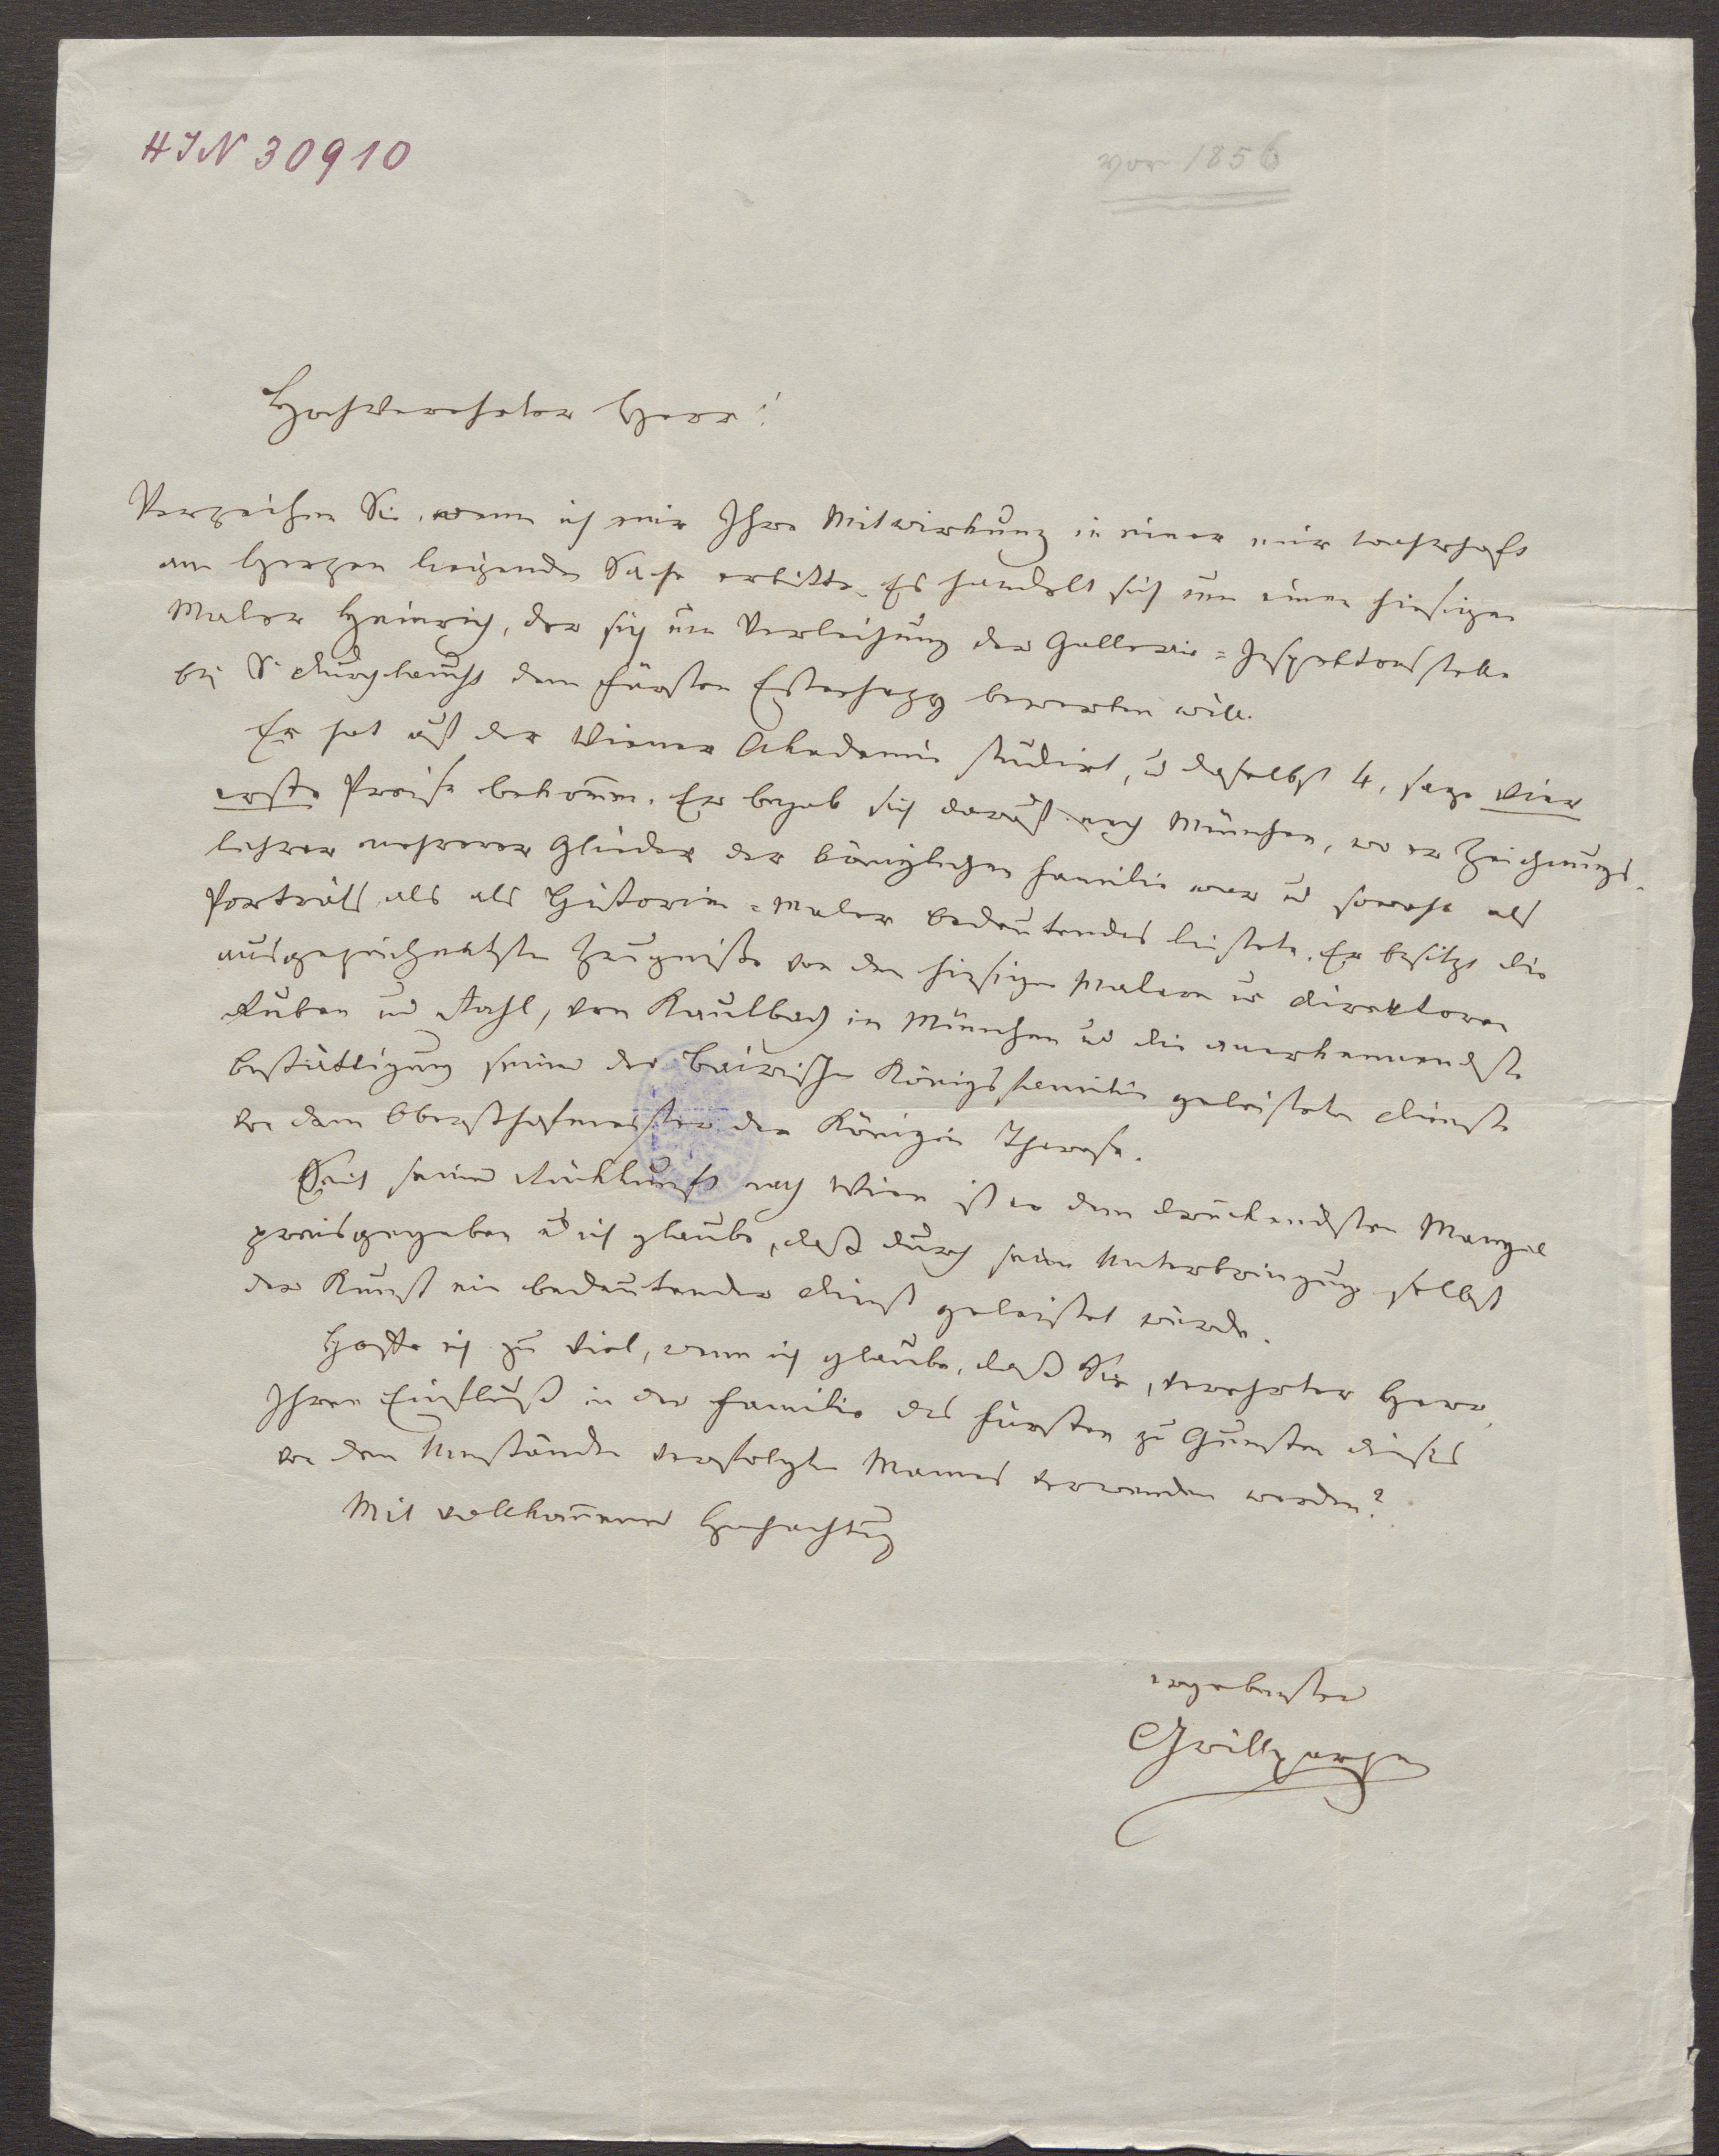 HIN 30910
vor 1856
Hochverehrter Herr!
Verzeihen Sie, wenn ich mir Ihre Mitwirkung in einer mir wahrhaft
am Herzen liegenden Sache erbitte. Es handelt sich um einen hiesigen
Maler Heinrich, der sich um Verleihung der Gallerie-Inspektorsstelle
bei Sr Durchlaucht dem Fürsten Esterhazy bewerben will.
Er hat auf der Wiener Akademie studirt, u daselbst 4, sage vier
erste Preise bekom̄en. Er begab sich darauf nach München, wo er Zeichnungs-
lehrer mehrerer Glieder der königlichen Familie war u sowohl als
Porträts als als Historien-Maler bedeutendes leistete. Er besitzt die
ausgezeichnetsten Zeugnisse von den hiesigen Malern u Direktoren
Ruben und Rahl, von Kaulbach in München und die anerkennendste
Bestättigung seiner der bairischen Königsfamilie geleisteten Dienste
von dem Obersthofmeister der Königin Therese.
Seit seiner Rückkunft nach Wien ist er dem drückendsten Mangel
preisgegeben und ich glaube, daß durch seine Unterbringung selbst
der Kunst ein bedeutender Dienst geleistet würde.
Hoffe ich zu viel, wenn ich glaube, daß Sie, verehrter Herr,
Ihren Einfluß in der Familie des Fürsten zu Gunsten dieses
von den Umständen verfolgten Mannes verwenden werden?
Mit vollkom̄ener Hochachtung
ergebenster
Grillparzer